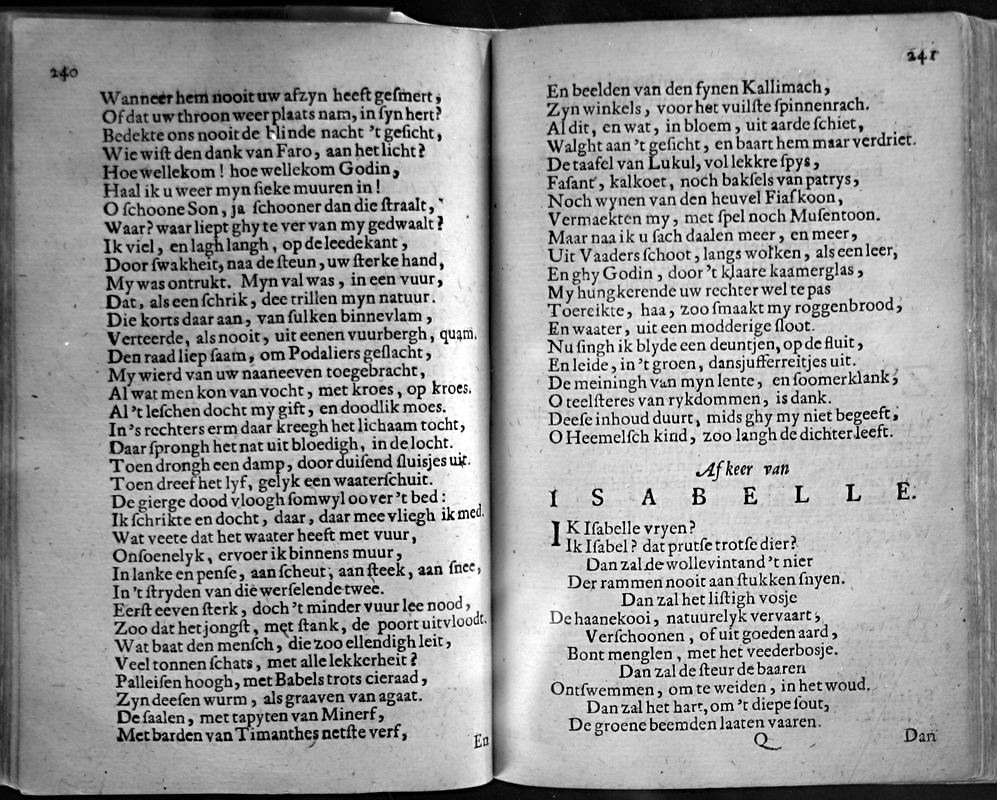 240
Wanneer hem nooit uw afzyn heeft gesmert,
Of dat uw throon weer plaats nam, in syn hert?
Bedekte ons nooit de blinde nacht 't gesicht,
Wie wist den dank van Faro, aan het licht?
Hoe wellekom! hoe wellekom Godin,
Haal ik u weer myn sieke muuren in!
O schoone Son, ja schooner dan die straalt,
Waar? waar liept ghy te ver van my gedwaalt?
Ik viel, en lagh langh, op de leedekant,
Door swakheit, naa de steun, uw sterke hand,
My was ontrukt. Myn val was, in een vuur,
Dat, als een schrik, dee trillen myn natuur.
Die korts daar aan, van sulken binnevlam,
Verteerde, als nooit, uit eenen vuurbergh, quam.
Den raad liep saam, om Podaliers geslacht,
My wierd van uw naaneeven toegebracht,
Al wat men kon van vocht, met kroes, op kroes.
Al 't leschen docht my gift, en doodlik moes.
In 's rechters erm daar kreegh het lichaam tocht,
Daar sprongh het nat uit bloedigh, in de locht.
Toen drongh een damp, door duisend sluisjes uit.
Toen dreef het lyf, gelyk een waaterschuit.
De gierge dood vloogh somwyl oover 't bed:
Ik schrikte en docht, daar, daar mee vliegh ik med.
Wat veete dat het waater heeft met vuur,
Onsoenelyk, ervoer ik binnens muur,
In lanke en pense, aan scheut, aan steek, aan snee,
In 't stryden van die werselende twee.
Eerst eeven sterk, doch 't minder vuur lee nood,
Zoo dat het jongst, met stank, de poort uitvloodt.
Wat baat den mensch, die zoo ellendigh leit,
Veel tonnen schats, met alle lekkerheit?
Palleisen hoogh, met Babels trots cieraad,
Zyn deesen wurm, als graaven van agaat.
De saalen, met tapyten van Minerf,
Met barden van Timanthes netste verf,
En
241
En beelden van den fynen Kallimach,
Zyn winkels, voor het vuilste spinnenrach.
Al dit, en wat, in bloem, uit aarde schiet,
Walght aan 't gesicht, en baart hem maar verdriet.
De taafel van Lukul, vol lekkre spys,
Fasant, kalkoet, noch baksels van patrys,
Noch wynen van den heuvel Fiaskoon,
Vermaekten my, met spel noch Musentoon.
Maar naa ik u sach daalen meer, en meer,
Uit Vaaders schoot, langs wolken, als een leer,
En ghy Godin, door 't klaare kaamerglas,
My hungkerende uw rechter wel te pas
Toereikte, haa, zoo smaakt my roggenbrood,
En waater, uit een modderige sloot.
Nu singh ik blyde een deuntjen, op de fluit,
En leide, in 't groen, dansjufferreitjes uit.
De meiningh van myn lente, en soomerklank,
O teelsteres van rykdommen, is dank.
Deese inhoud duurt, mids ghy my niet begeeft,
O Heemelsch kind, zoo langh de dichter leeft.
Afkeer van
ISABELLE.
IK Isabelle vryen?
Ik Isabel? dat prutse trotse dier?
Dan zal de wollevint and 't nier
Der rammen nooit aan stukken snyen.
Dan zal het listigh vosje
De haanekooi, natuurelyk vervaart,
Verschoonen, of uit goeden aard,
Bont menglen, met het veederbosje.
Dan zal de steur de baaren
Ontswemmen, om te weiden, in het woud.
Dan zal het hart, om 't diepe sout,
De groene beemden laaten vaaren.
Q
Dan